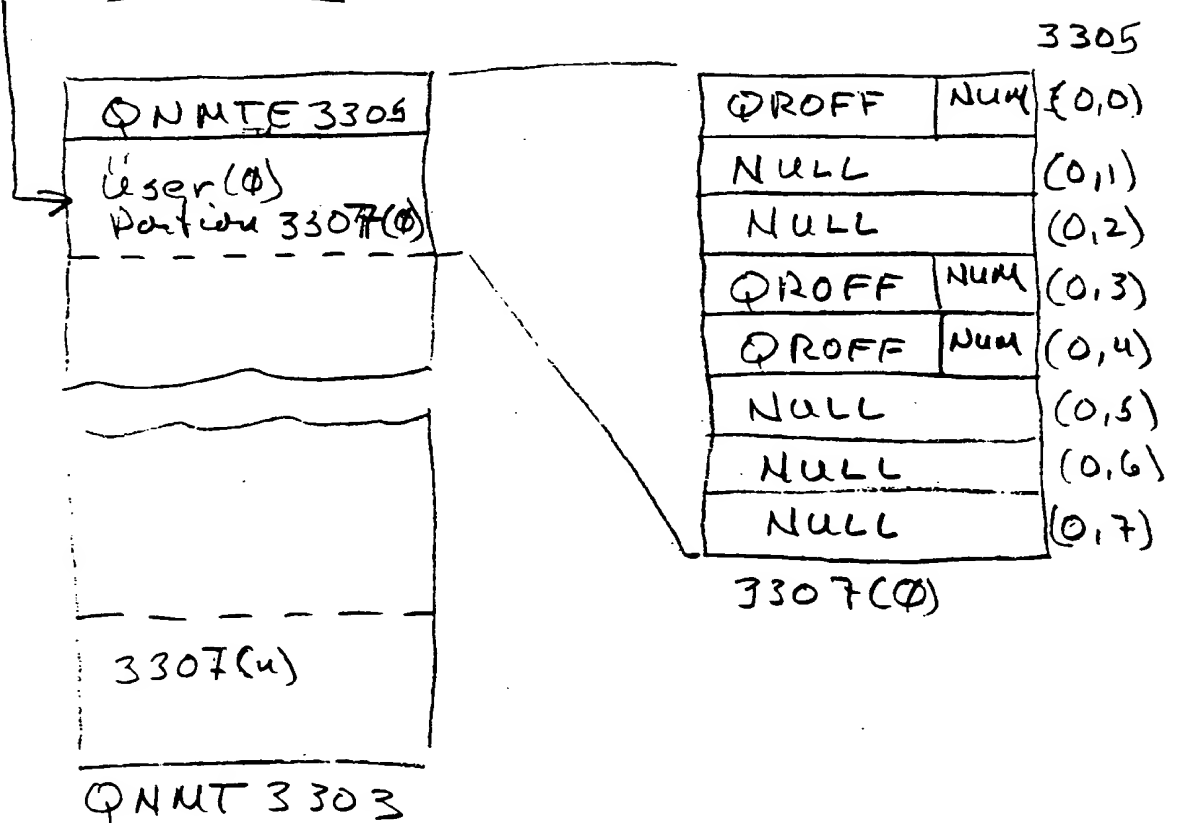 3305
QNMTE 3305
User(Ø)
Portion 3307(Ø)
3307(n)
QNMT 3303
QROFF NUM (0,0)
NULL (0,1)
NULL (0,2)
QROFF NUM (0,3)
QROFF NUM (0,4)
NULL (0,5)
NULL (0,6)
NULL (0,7)
3307(Ø)